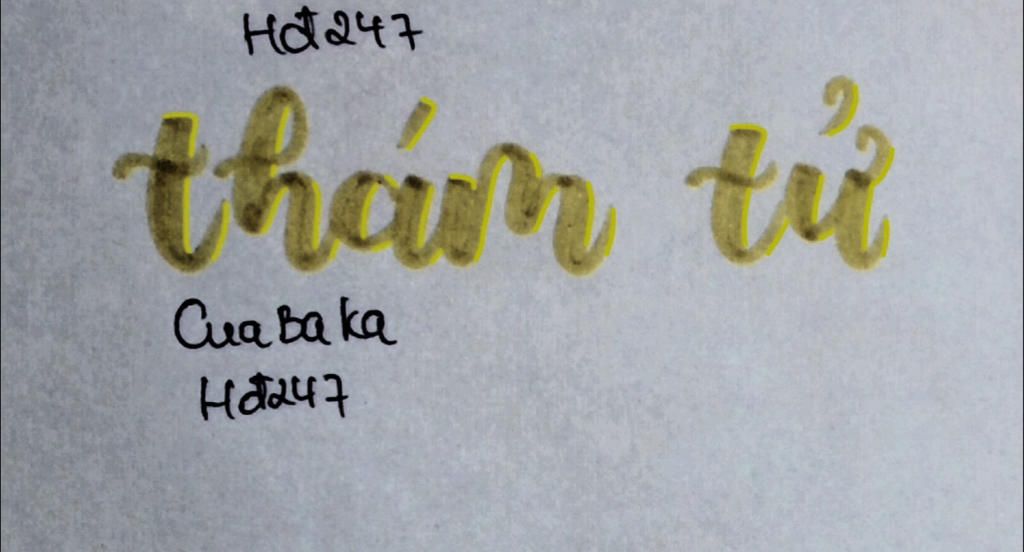 Hđ247
thám tử
Cuabaka
Hđ247